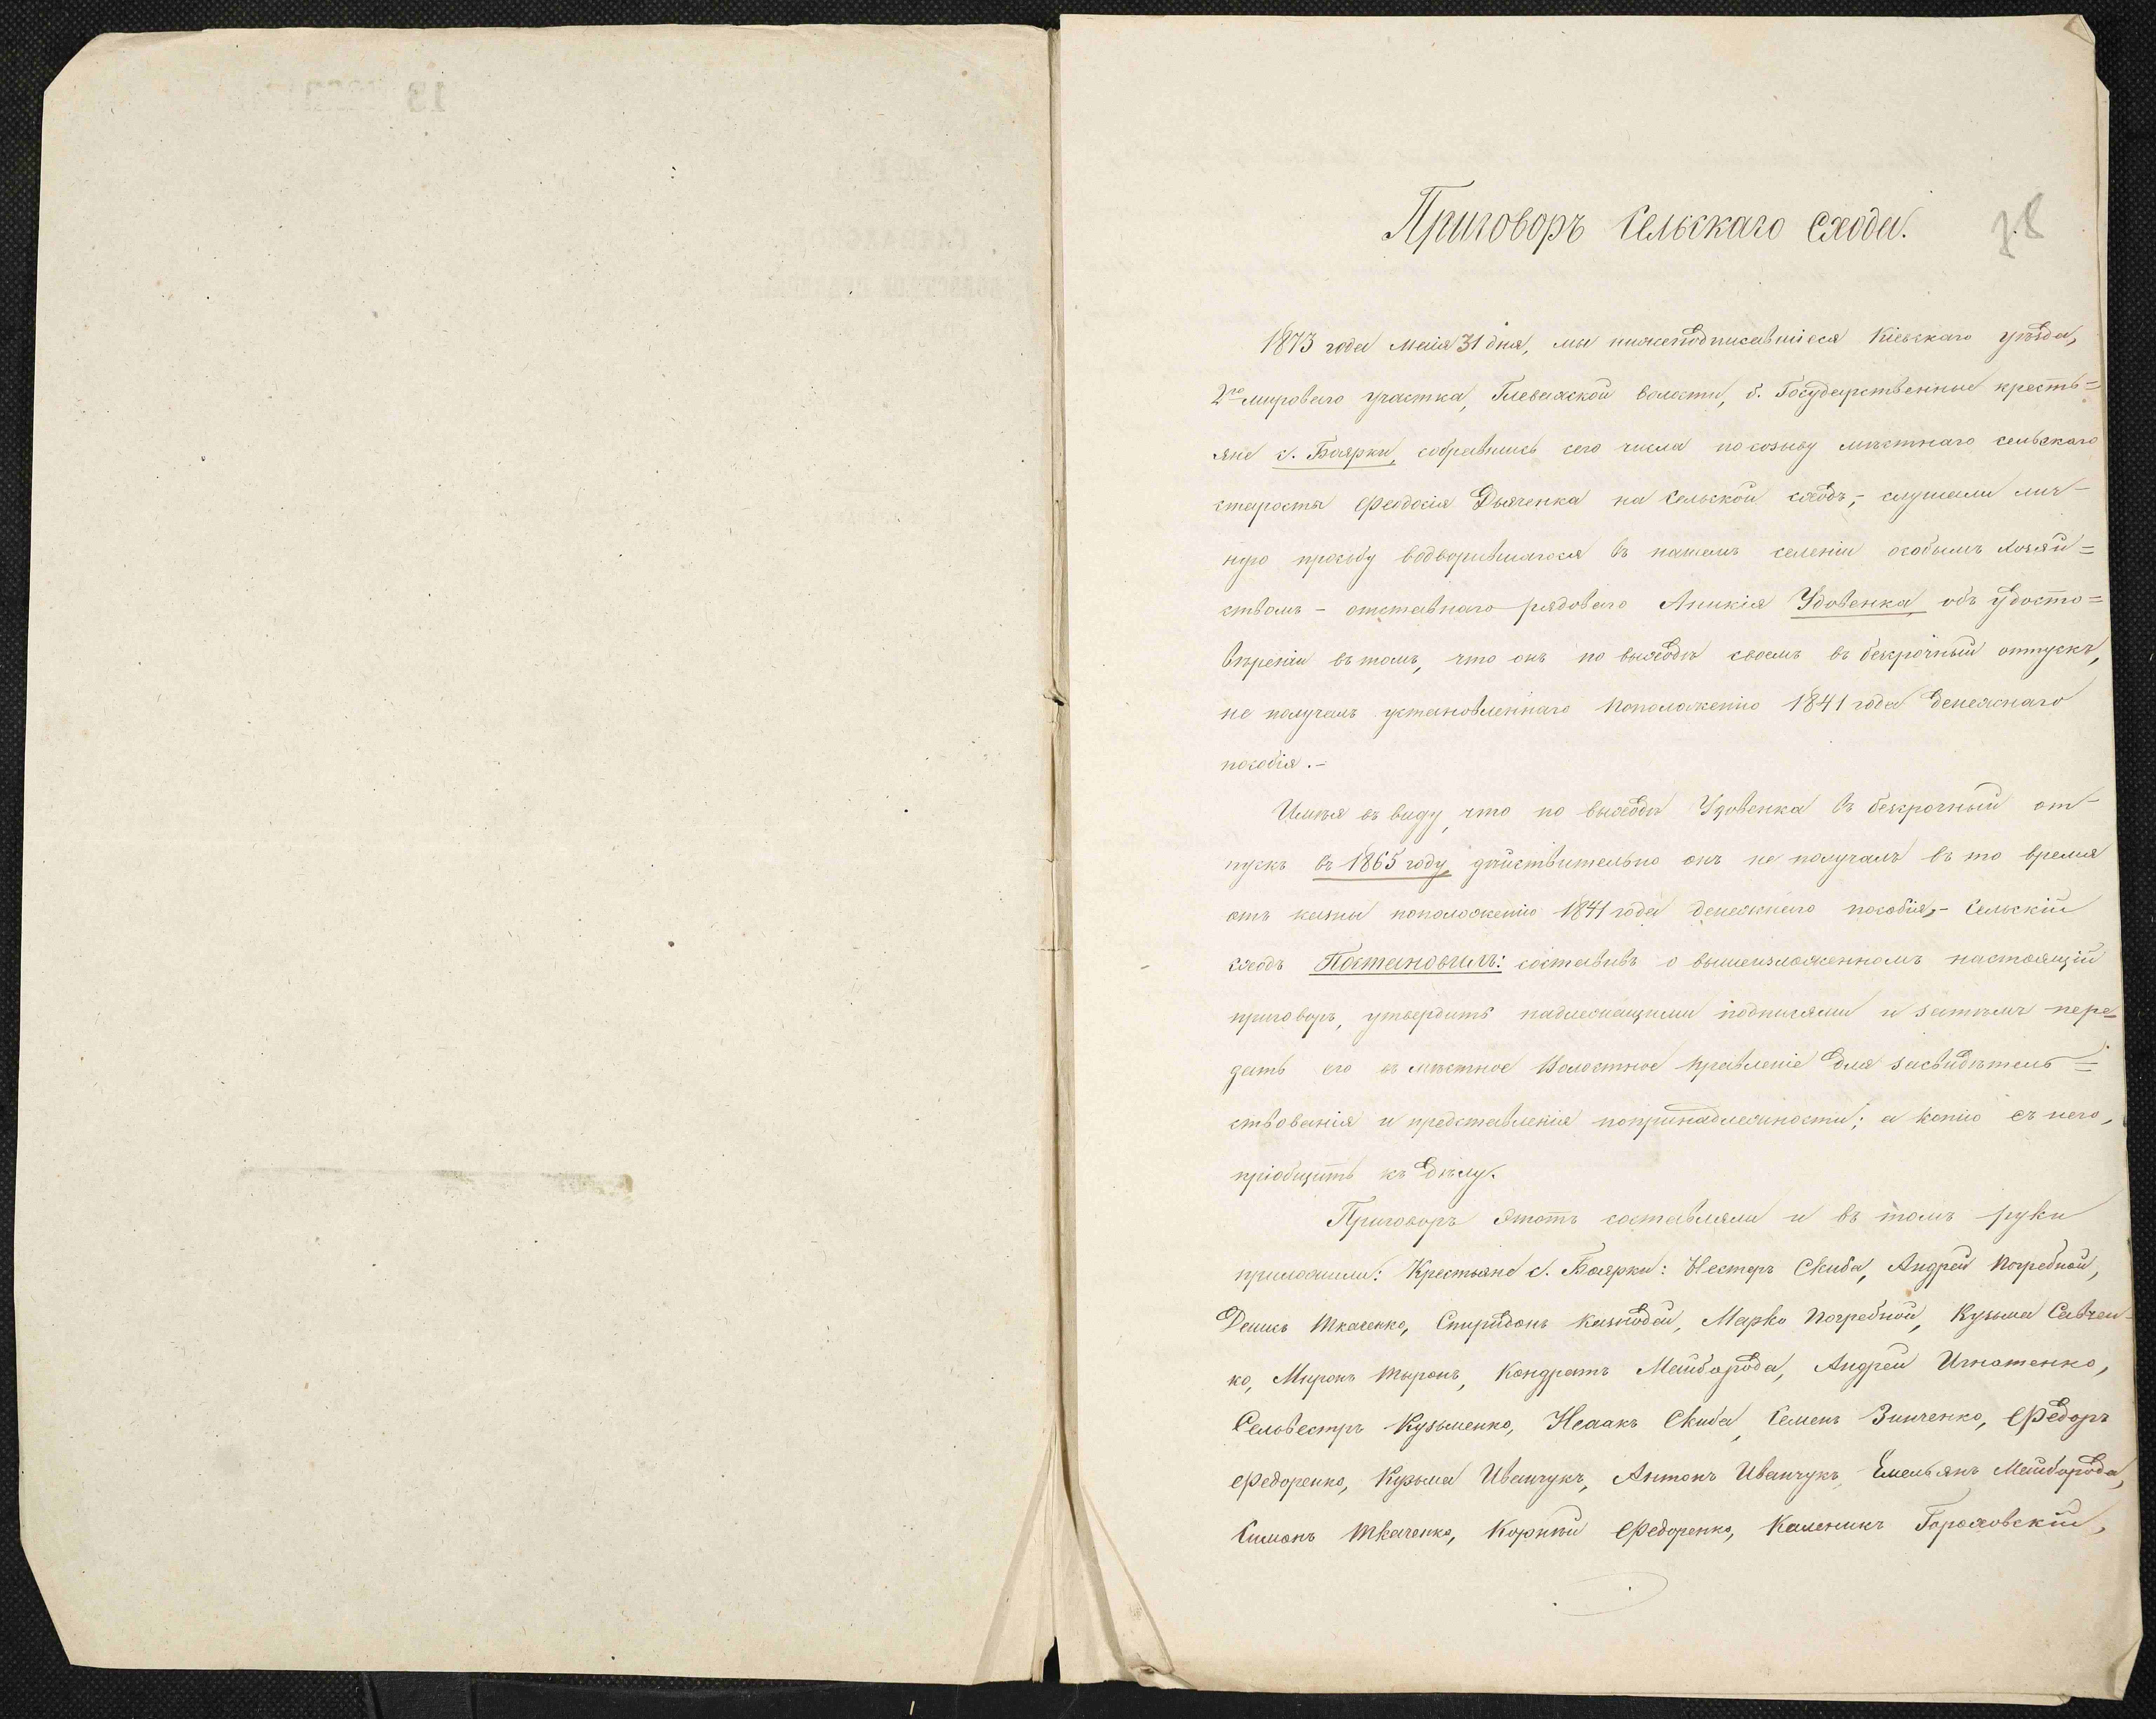 Приговоръ Сельскаго Схода.
78
1873 года Маія 31 дня, мы нижеподписавшіеся Кіевскаго уѣзда,
2го мироваго участка, Глевахской волости, б. Государственные кресть=
яне с. Боярки, собравшись сего числа по созыву мѣстнаго сельскаго
старосты Феодосія Дьяченка на Сельской сходъ, – слушали лич-
ную прозьбу водворившагося въ нашемъ селеніи особымъ хозяй=
ствомъ – отставнаго рядоваго Аникія Удовенка, объ удосто=
вѣреніи въ томъ, что онъ по выходѣ своемъ въ безсрочный отпускъ,
не получалъ установленнаго по положенію 1841 года денежнаго
пособія. –
Имѣя въ виду, что по выходѣ Удовенка въ безсрочный от-
пускъ въ 1865 году, дѣйствительно онъ не получалъ въ то время
отъ казны по положенію 1841 года денежнаго пособія, – Сельскій
сходъ Постановилъ: составивъ о вышеизложенномъ настоящій
приговоръ, утвердить надлежащими подписями и затѣмъ пере=
дать его въ мѣстное Волостное правленіе для засвидѣтель=
ствованія и представленія по принадлежности; а копію съ него,
пріобщить къ дѣлу.
Приговоръ этотъ составляли и въ томъ руки
приложили: Крестьяне с. Боярки: Нестеръ Скиба, Андрей Погребной,
Денисъ Ткаченко, Спиридонъ Казнодей, Марко Погребной, Кузьма Савчен-
ко, Миронъ Тыронъ, Кондратъ Майборода, Андрей Игнатенко,
Сельвестръ Кузьменко, Исаакъ Скиба, Семенъ Зинченко, Федоръ
Федоренко, Кузьма Иванчукъ, Антонъ Иванчукъ, Емельянъ Майборода,
Симонъ Ткаченко, Корнѣй Федоренко, Каленикъ Гороховскій,